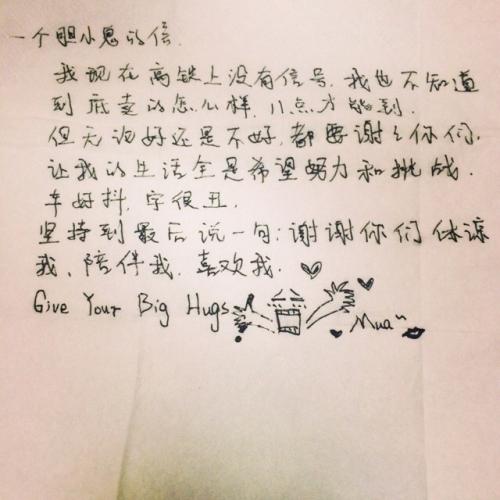 一个胆小鬼的信.
我现在高铁上没有信号,我也不知道
到底卖的怎么样,八点才能到.
但无论好还是不好,都要谢谢你们.
让我的生活全是希望努力和挑战.
车好抖,字很丑.
坚持到最后说一句:谢谢你们体谅
我、陪伴我、喜欢我.
Give Your Big Hugs
Mua~